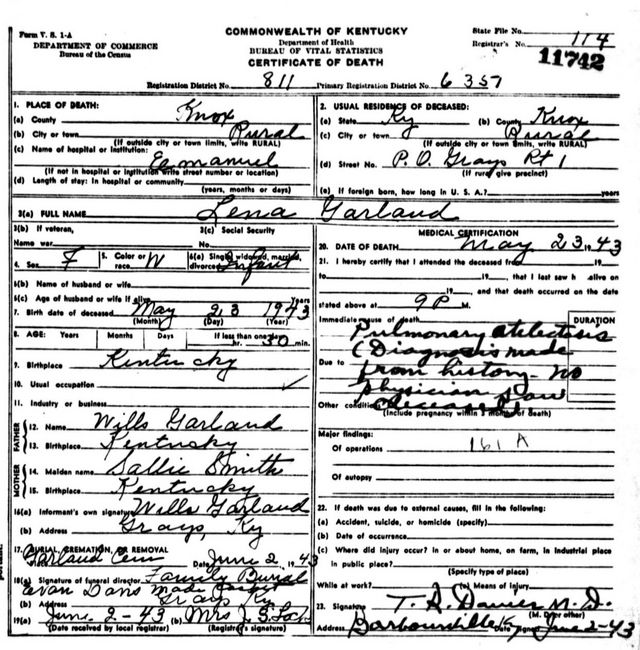 Form V. S. 1-A
DEPARTMENT OF COMMERCE
Bureau of the Census
COMMONWEALTH OF KENTUCKY
Department of Health
BUREAU OF VITAL STATISTICS
CERTIFICATE OF DEATH
State File No.
Registrar's No. 114
11742
Registration District No. 811 Primary Registration District No. 6357
1. PLACE OF DEATH:
(a) County Knox
(b) City or town Rural
(If outside city or town limits, write RURAL)
(c) Name of hospital or institution:
Emanuel
(If not in hospital or institution write street number or location)
(d) Length of stay: In hospital or community
(years, months or days)
2. USUAL RESIDENCE OF DECEASED:
(a) State Ky (b) County Knox
(c) City or town Rural
(If outside city or town limits, write RURAL)
(d) Street No. P.O. Grays Rt 1
(If rural give precinct)
(e) If foreign born, how long in U. S. A.? years
3(a) FULL NAME Lena Garland
3(b) If veteran,
Name war
3(c) Social Security
No.
4. Sex F 5. Color or race W 6(a) Single, widowed, married, divorced Infant
6(b) Name of husband or wife
6(c) Age of husband or wife if alive Years
7. Birth date of deceased May 23 1943
(Month) (Day) (Year)
8. AGE: Years Months Days If less than one day
hr. 30 min.
9. Birthplace Kentucky
10. Usual occupation
11. Industry or business
FATHER
12. Name Wills Garland
13. Birthplace Kentucky
MOTHER
14. Maiden name Sallie Smith
15. Birthplace Kentucky
16(a) Informant's own signature Wills Garland
(b) Address Grays, Ky
17. BURIAL, CREMATION, OR REMOVAL
Garland Cem Date June 2, 1943
18(a) Signature of funeral director Family Burial
Evan Dans made
(b) Address Grays Ky
19(a) June 2-43 (b) Mrs J. G.
(Date received by local registrar) (Registrar's signature)
MEDICAL CERTIFICATION
20. DATE OF DEATH May 23, 43
21. I hereby certify that I attended the deceased from 19
to 19, that I last saw h alive on
19, and that death occurred on the date
stated above at 9 P M.
Immediate cause of death
DURATION
Pulmonary atelectosis
(Diagnosis made
Due to from history - no
physician saw
Other conditions deceased)
(Include pregnancy within 3 months of death)
Major findings:
Of operations 161 A
Of autopsy
22. If death was due to external causes, fill in the following:
(a) Accident, suicide, or homicide (specify)
(b) Date of occurrence
(c) Where did injury occur? in or about home, on farm, in industrial place
in public place?
(Specify type of place)
While at work? (e) Means of injury
23. Signature T. R. Davies M. D.
(M. D. or other)
Address Barbourville Ky Date signed June 2-43